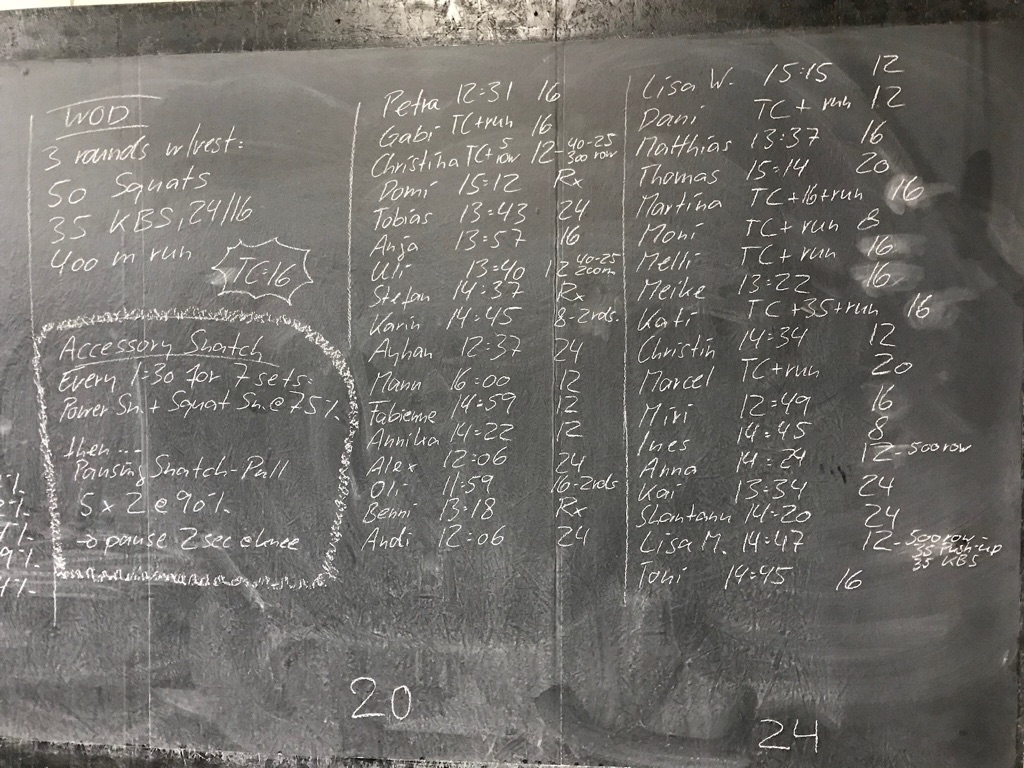 WOD
3 rounds w/rest:
50 Squats
35 KBS, 24/16
400 m run
TC=16
Accessory Snatch
Every 1:30 for 7 sets:
Power Sn. + Squat Sn @ 75%
then ...
Pausing Snatch-Pull
5 x 2 @ 90%
→ pause 2 sec @ knee
Petra 12:31 16
Gabi TC+run 16
Christina TC+5 row 12-40-25 300 row
Domi 15:12 Rx
Tobias 13:43 24
Anja 13:57 16
Uli 13:40 12 40-25 200m
Stefan 14:37 Rx
Karin 14:45 8-2rds
Ayhan 12:37 24
Manu 16:00 12
Fabienne 14:59 12
Annika 14:22 12
Alex 12:06 24
Oli 11:59 16-2rds
Benni 13:18 Rx
Andi 12:06 24
20
Lisa W. 15:15 12
Dani TC + run 12
Matthias 13:37 16
Thomas 15:14 20
Martina TC+16+run 16
Moni TC+run 8
Melli TC+run 16
Meike 13:22 16
Kati TC+35+run 16
Christin 14:34 12
Marcel TC+run 20
Miri 12:49 16
Ines 14:45 8
Anna 14:24 12-500row
Kai 13:34 24
Shantanu 14:20 24
Lisa M. 14:47 12-500row-
35 push-up
35 KBS
Toni 14:45 16
24